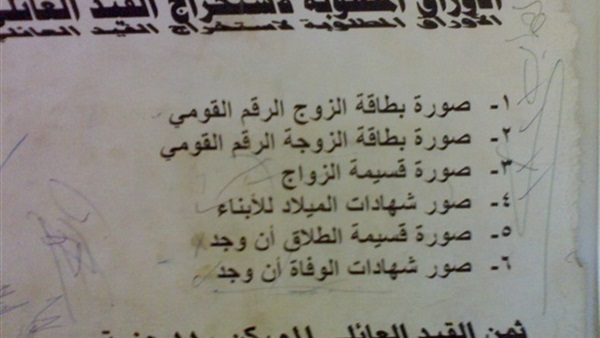 الأوراق المطلوبة لاستخراج القيد العائلي
١- صورة بطاقة الزوج الرقم القومي
٢- صورة بطاقة الزوجة الرقم القومي
٣- صورة قسيمة الزواج
٤- صور شهادات الميلاد للأبناء
٥- صورة قسيمة الطلاق أن وجد
٦- صور شهادات الوفاة أن وجد
ثمن القيد العائلي